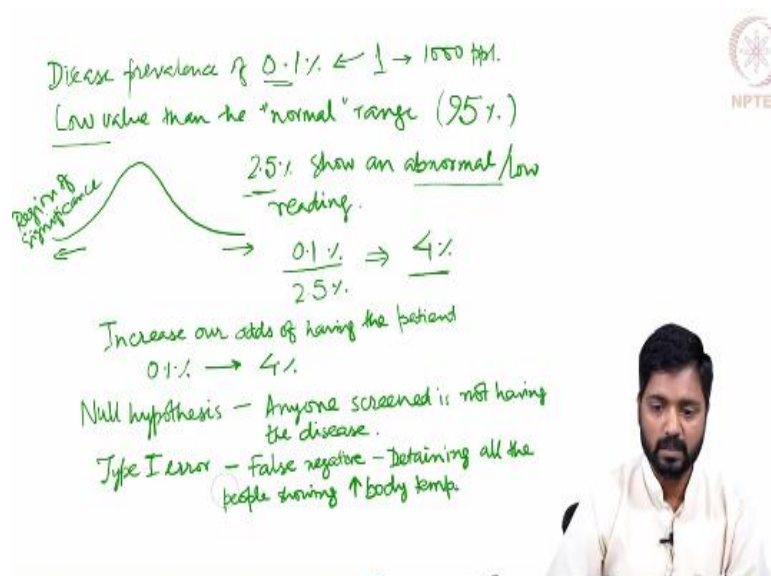 Disease prevalence of 0.1% ← 1 → 1000 ppl.
Low value than the "normal" range (95%)
2.5% show an abnormal/low
reading.
Region of
significance
0.1% ⇒ 4%
2.5%
Increase our odds of having the patient
0.1% → 4%
Null hypothesis - Anyone screened is not having
the disease.
Type I error - False negative - Detaining all the
people showing ↑ body temp.
NPTE